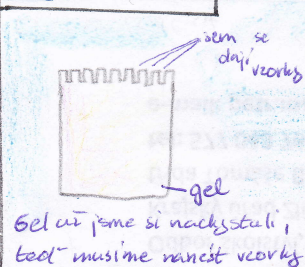 sem se
dají
vzorky
gel
Gel už jsme si nachystali,
teď musíme nanést vzorky